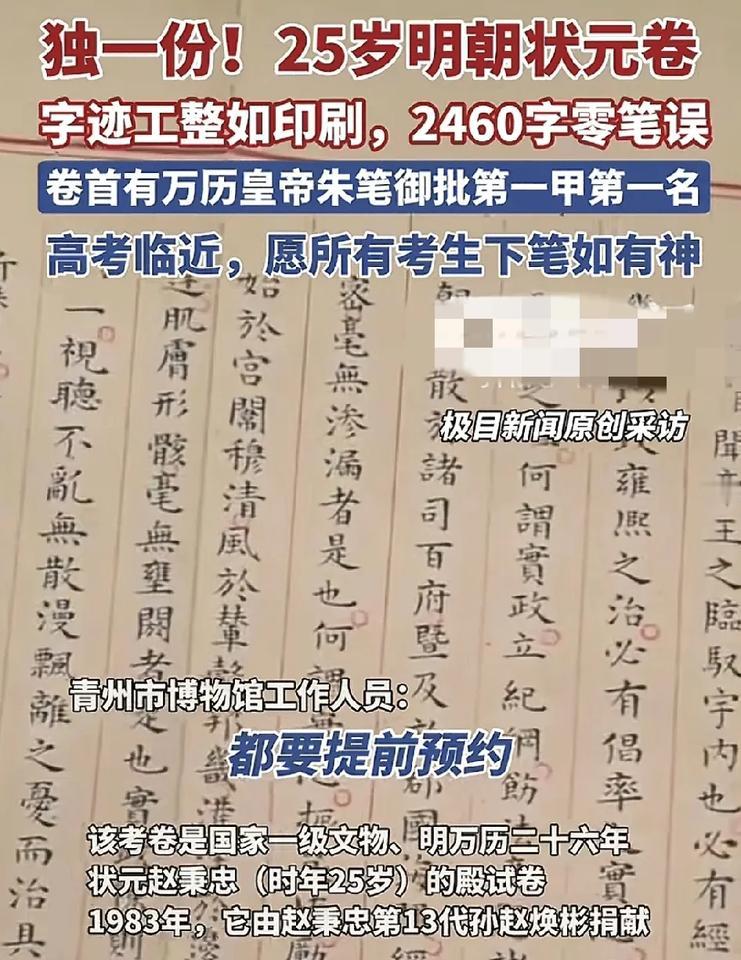 独一份！25岁明朝状元卷
字迹工整如印刷，2460字零笔误
卷首有万历皇帝朱笔御批第一甲第一名
高考临近，愿所有考生下笔如有神
极目新闻原创采访
聞帝王之臨馭宇內也必有經
雍熙之治必有倡率 實
之何謂實政立紀綱飭法
朝 散於諸司百府暨及於郡國
密毫無滲漏者是也何謂 振勵
始於宮闈穆清風於輦轂邦畿灌
達肌膚形骸毫無壅閼者是也實 則
一視聽不亂無散漫飄離之憂而治具
青州市博物馆工作人员：
都要提前预约
该考卷是国家一级文物、明万历二十六年
状元赵秉忠（时年25岁）的殿试卷
1983年，它由赵秉忠第13代孙赵焕彬捐献